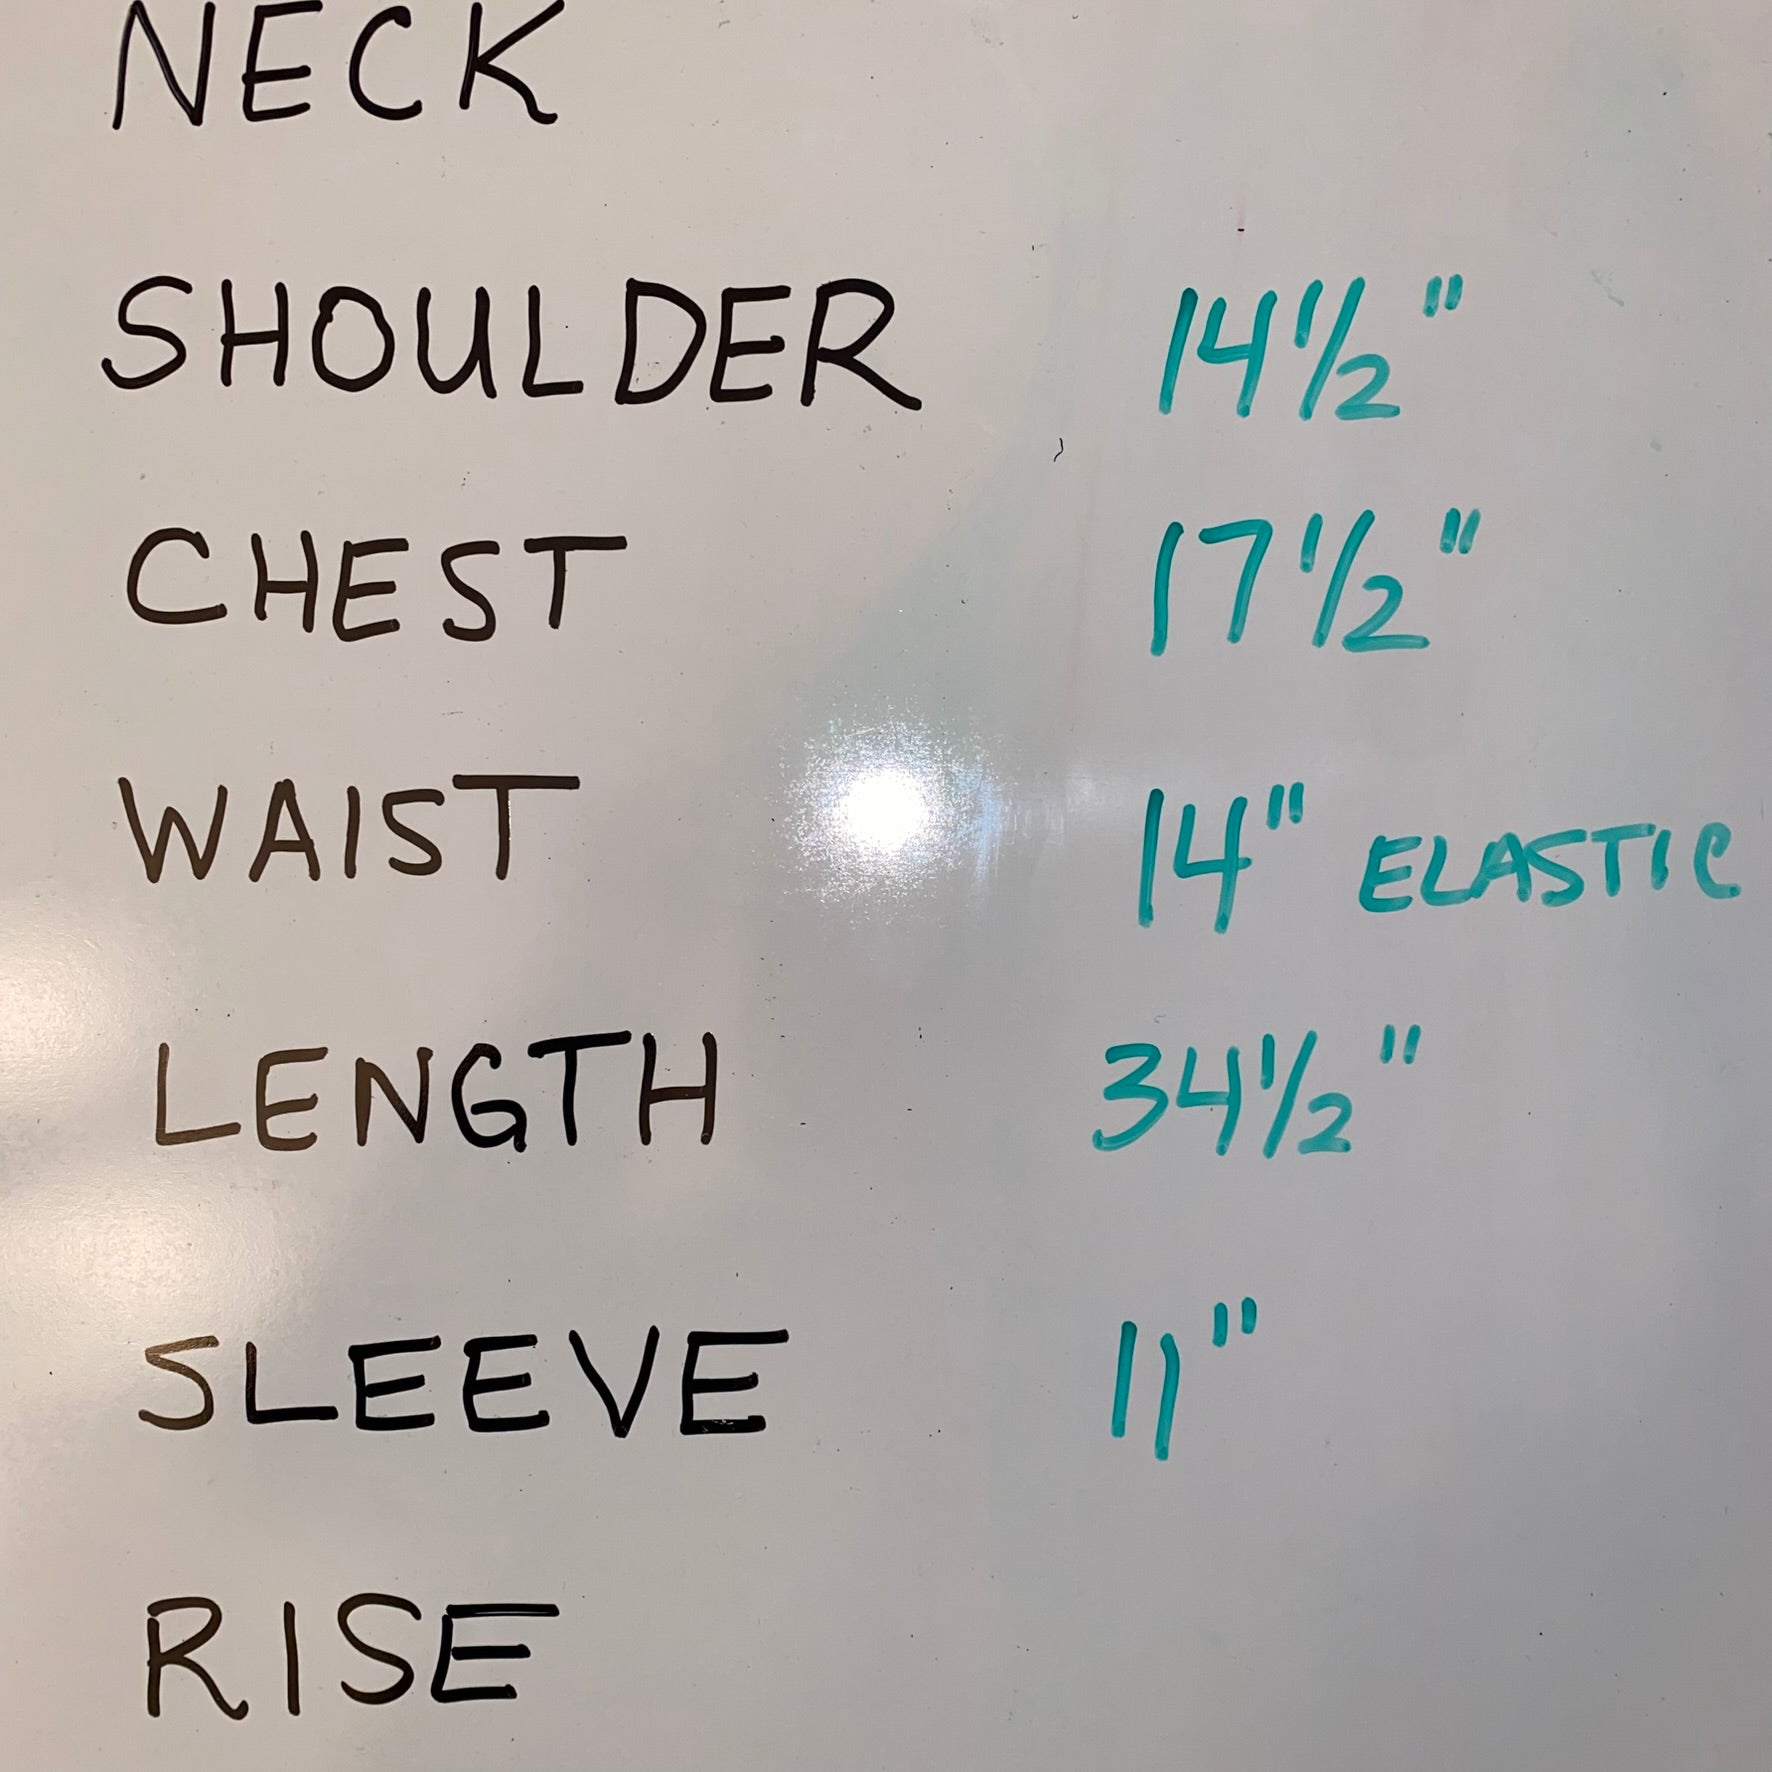 NECK
SHOULDER 14 1/2"
CHEST 17 1/2"
WAIST 14" ELASTIC
LENGTH 34 1/2"
SLEEVE 11"
RISE